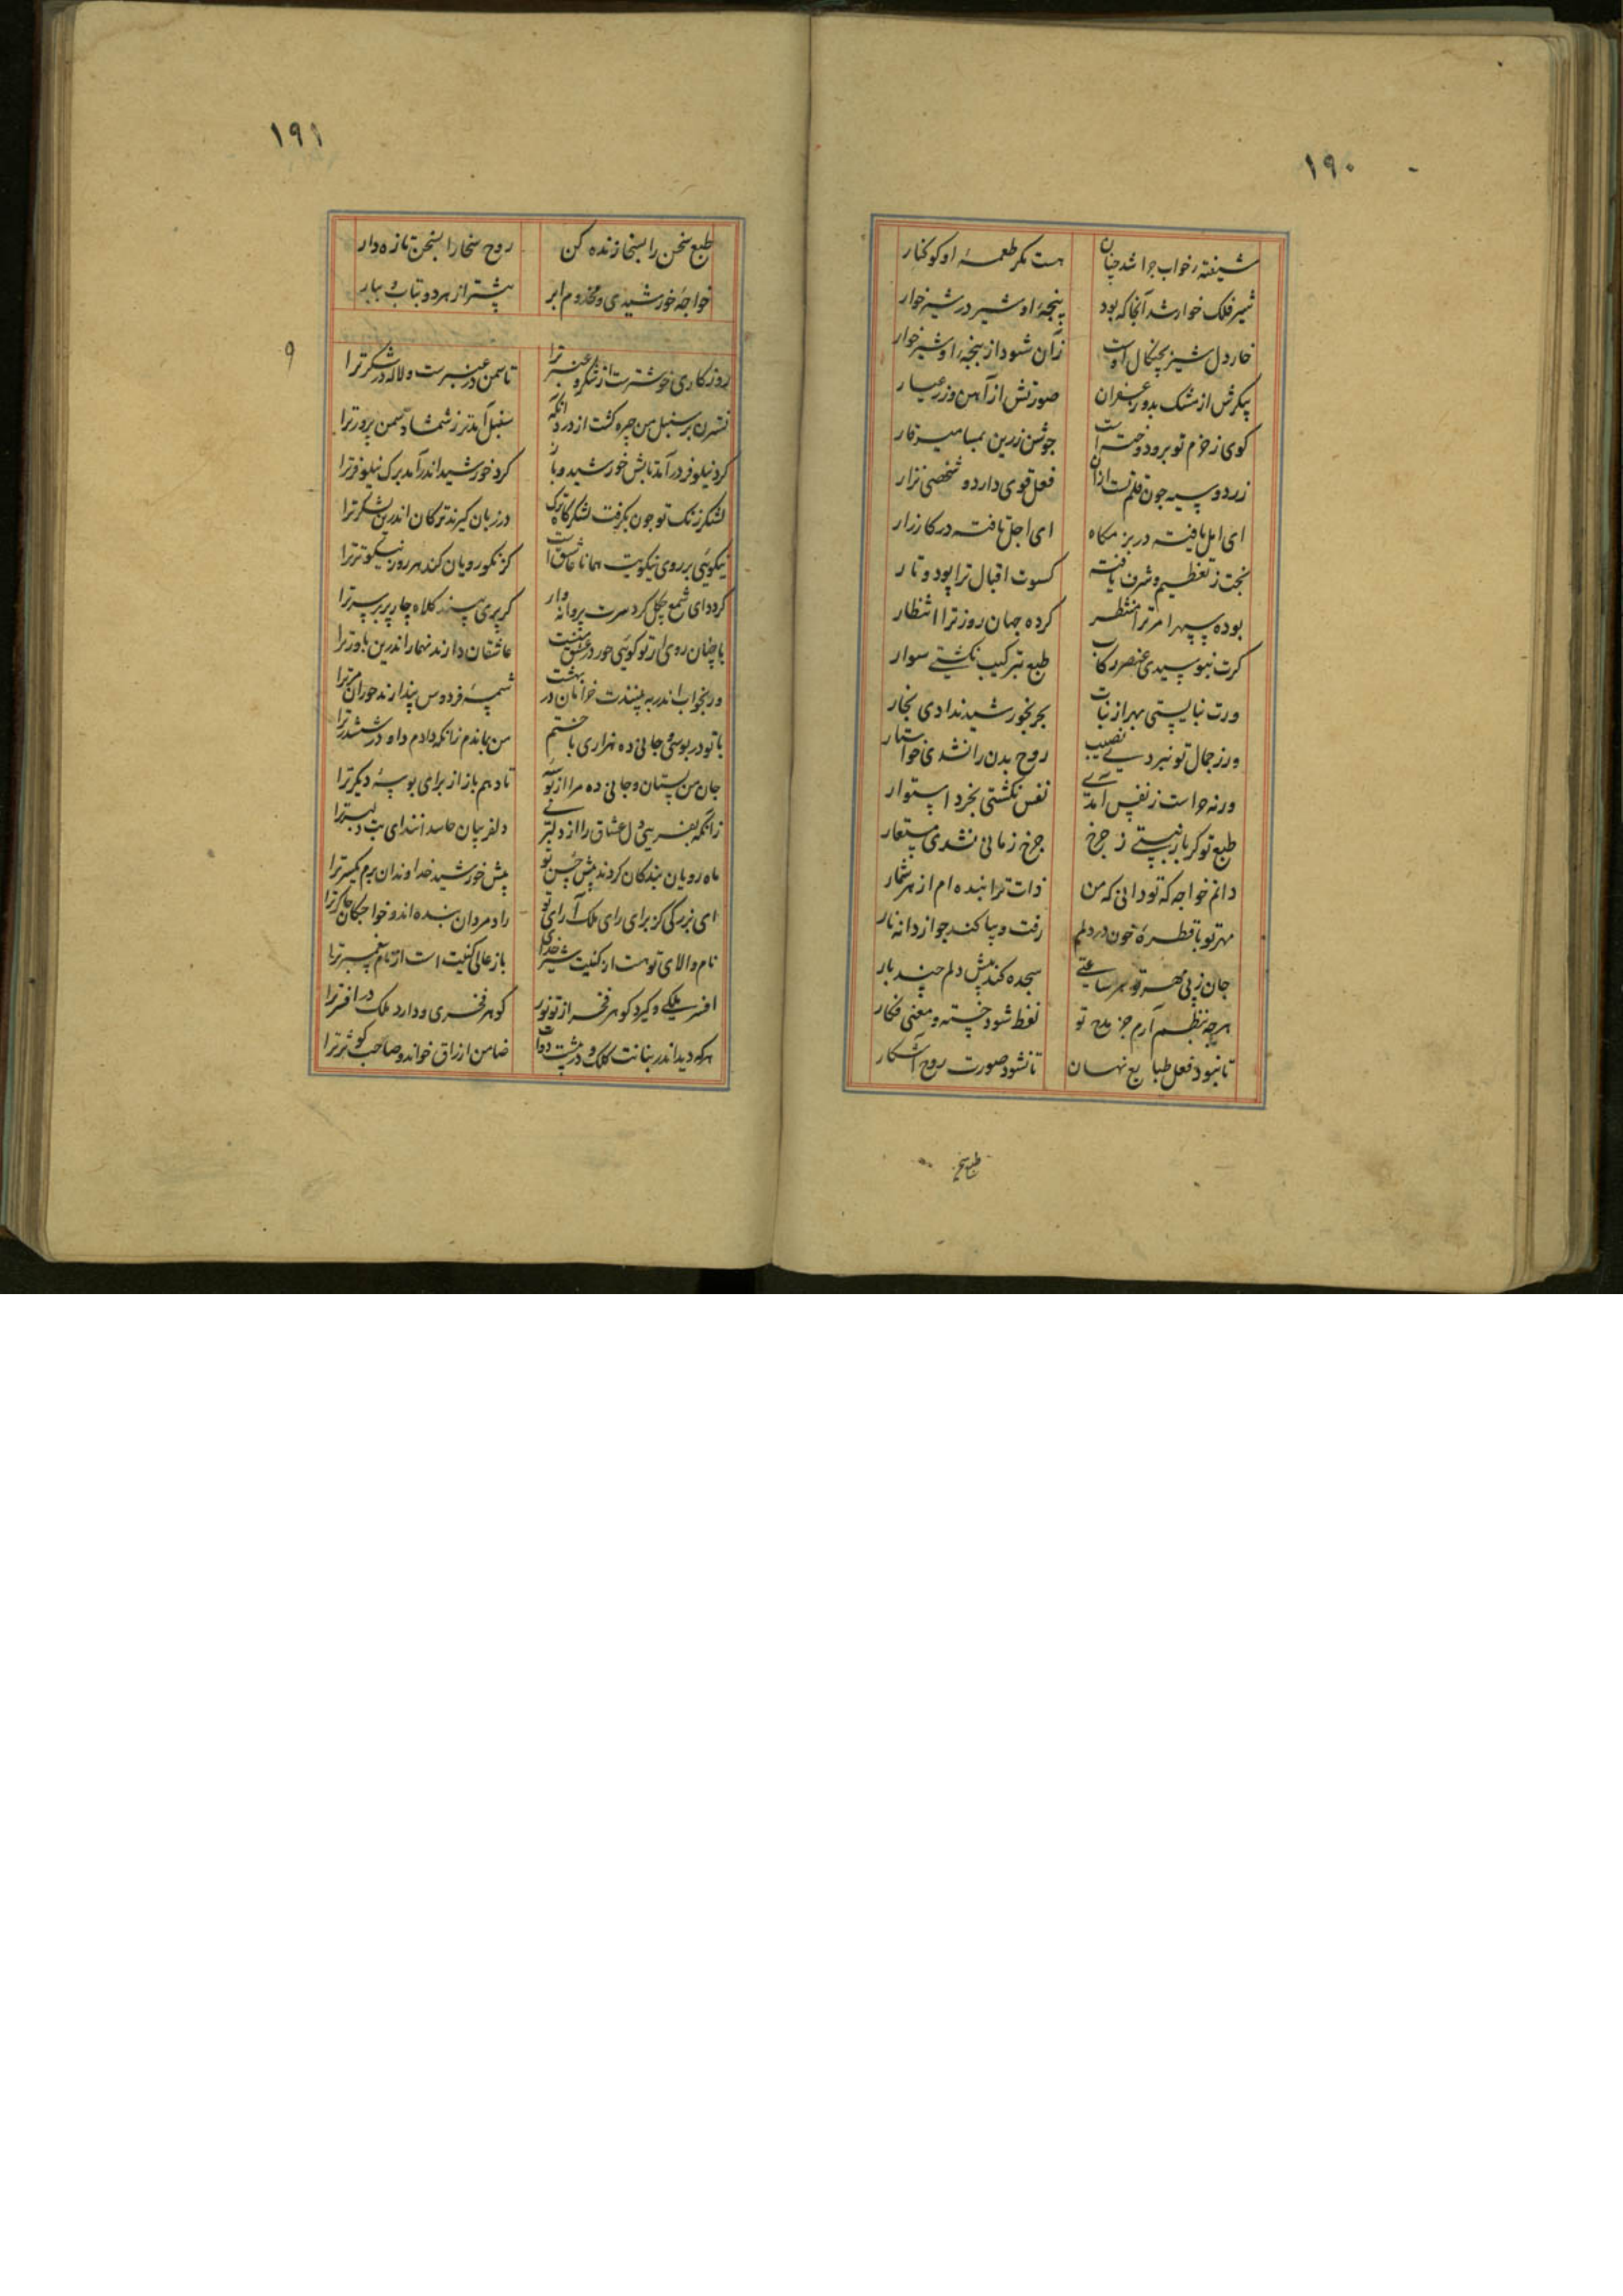 ۱۹۰
شیفته رخواب چرا شد چنان هست مکر طعمهٔ او کوکنار
شیر فلک خوار شد آنجا که بود پنجهٔ او شیر در شیر خوار
خار دل شیر بچنکال اوست زان شود از پنجهٔ او شیر خوار
پیکرش از مشک بدور زعفران صورتش از آهن وزر عیار
کوی زخم تو برو دوختست جوشن زرین بمسامیر قار
زرد و سیه چون قلم تست ازان فعل قوی دارد و شخصی نزار
ای امل یافته در بزمکاه ای اجل تافته در کارزار
بخت ز تعظیم و شرف یافته کسوت اقبال ترا پود و تار
بوده سپهر امر ترا منتظر کرده جهان روز ترا انتظار
کرت نبوسیدی عنصر رکاب طبع بترکیب نکشتی سوار
ورت نبایستی بهر از نبات بحر بخورشید ندادی بخار
ور ز جمال تو نبردی نصیب روح بدن را نشدی خواستار
ورنه حواست ز نفس آمدی نفس نکشتی بخرد استوار
طبع تو کر باز نبستی ز چرخ چرخ زمانی نشدی مستعار
دانم خواجه که تو دانی که من ذات ترا بنده ام از هر شمار
مهر تو با قطرهٔ خون در دلم رفت و بپاکند چو از دانه نار
جان زپی مهر تو هر ساعتی سجده کند پیش دلم چند بار
هرچه بنظم آرم جز مدح تو لفظ شود خسته و معنی فکار
تا نبود فعل طبایع نهان تا نشود صورت روح آشکار
طبع سخن
۱۹۱
طبع سخن را بسخا زنده کن روح سخا را بسخن تازه دار
خواجهٔ خورشیدی و مخدوم ابر بیشتر از هر دو بتاب و ببار
۹
روزکاری خوشترست از شکر و عنبر ترا تا سمن در عنبرست و لاله در شکر ترا
نسترن بر سنبل من چیره کشت از درد آنکه سنبل آمد بر ز شمشاد سمن پرور ترا
کرد نیلوفر در آمد تابش خورشید و باز کرد خورشید اندر آمد برک نیلوفر ترا
لشکر زنک تو چون بکرفت لشکرکاه ترک در زبان کیرند ترکان اندرین لشکر ترا
نیکوئی بر روی نیکویت همانا عاشق است کز نکو رویان کند هر روز نیکوتر ترا
کردد ای شمع چکل کرد سرت پروانه وار کر پری بیند کلاه چار پر بر سر ترا
با چنان روی ار تو کوئی حور در عشق منست عاشقان دارند نهمار اندرین باور ترا
ور بخواب اندر به بینندت خرامان در بهشت شمسهٔ فردوس پندارند حوران مر ترا
با تو در بوسی و جانی ده هزاری باختم من بماندم زانکه دادم داو در ششدر ترا
جان من بستان و جانی ده مرا از بوسهٔ تا دهم باز از برای بوسهٔ دیکر ترا
زانکه بفریبی دل عشاق را از دلبری دلفریبان حاسد انند ای بت دلبر ترا
ماه رویان بندکان کردند پیش حسن تو پیش خورشید خداوندان برم یکسر ترا
ای بزرکی کز برای رای ملک آرای تو راد مردان بنده اند و خواجکان چاکر ترا
نام والای تو هست از کنیت شیر خدای باز عالی کنیت است از نام پیغمبر ترا
افسر ملکی و کیرد کوهر فخر از تو نور کوهر فخری و دارد ملک در افسر ترا
هر که دید اندر بنانت کلک و در مشتت دوات ضامن ارزاق خواند و صاحب کوثر ترا